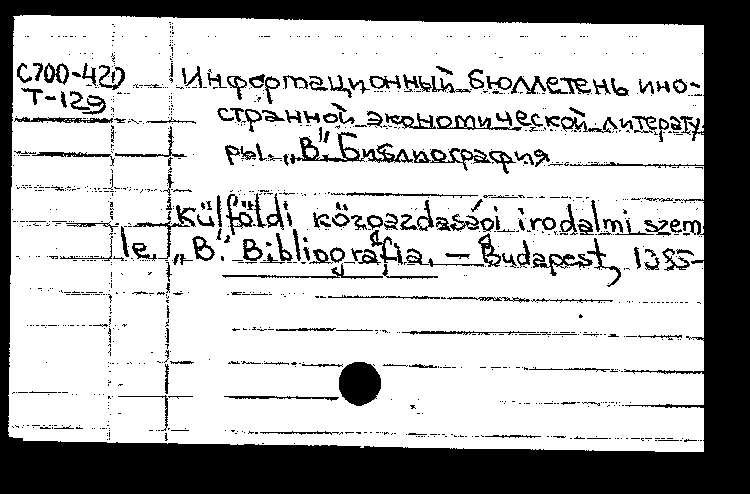 С700-420
Т-129
Информационный бюллетень ино-
странной экономической литерату-
ры. „В“. Библиография
Külföldi közgazdasági irodalmi szem-
le. „B“. Bibliográfia. — Budapest, 1985-